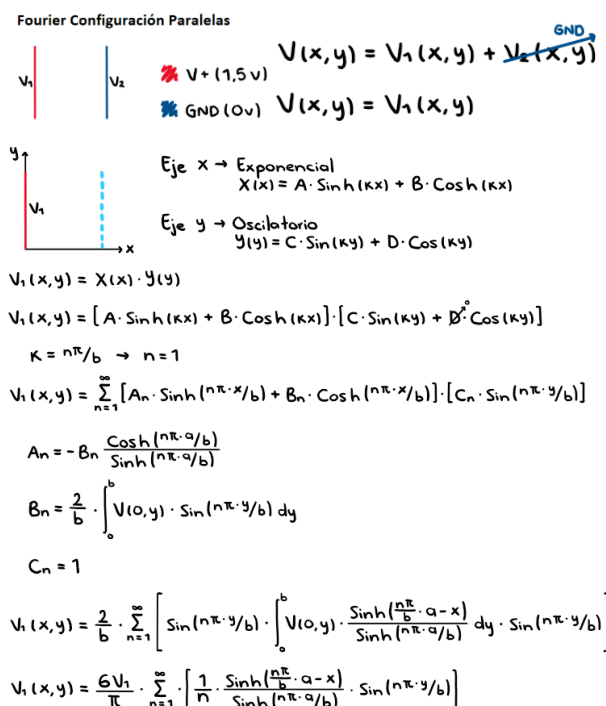 Fourier Configuración Paralelas
V₁ V₂
V+ (1,5 v)
GND (0v)
V(x,y) = V₁(x,y) + V₂(x,y) GND
V(x,y) = V₁(x,y)
y
V₁
x
Eje x → Exponencial
X(x) = A·Sinh(κx) + B·Cosh(κx)
Eje y → Oscilatorio
Y(y) = C·Sin(κy) + D·Cos(κy)
V₁(x,y) = X(x)·Y(y)
V₁(x,y) = [A·Sinh(κx) + B·Cosh(κx)]·[C·Sin(κy) + D⁰·Cos(κy)]
κ = nπ/b → n=1
V₁(x,y) = ∑_{n=1}^{∞} [An·Sinh(nπ·x/b) + Bn·Cosh(nπ·x/b)]·[Cn·Sin(nπ·y/b)]
An = -Bn Cosh(nπ·a/b) / Sinh(nπ·a/b)
Bn = 2/b · ∫₀ᵇ V(0,y)·Sin(nπ·y/b) dy
Cn = 1
V₁(x,y) = 2/b · ∑_{n=1}^{∞} [Sin(nπ·y/b)·∫₀ᵇ V(0,y)· Sinh(nπ/b·a-x) / Sinh(nπ·a/b) dy·Sin(nπ·y/b)]
V₁(x,y) = 6V₁/π · ∑_{n=1}^{∞} [1/n · Sinh(nπ/b·a-x) / Sinh(nπ·a/b) · Sin(nπ·y/b)]